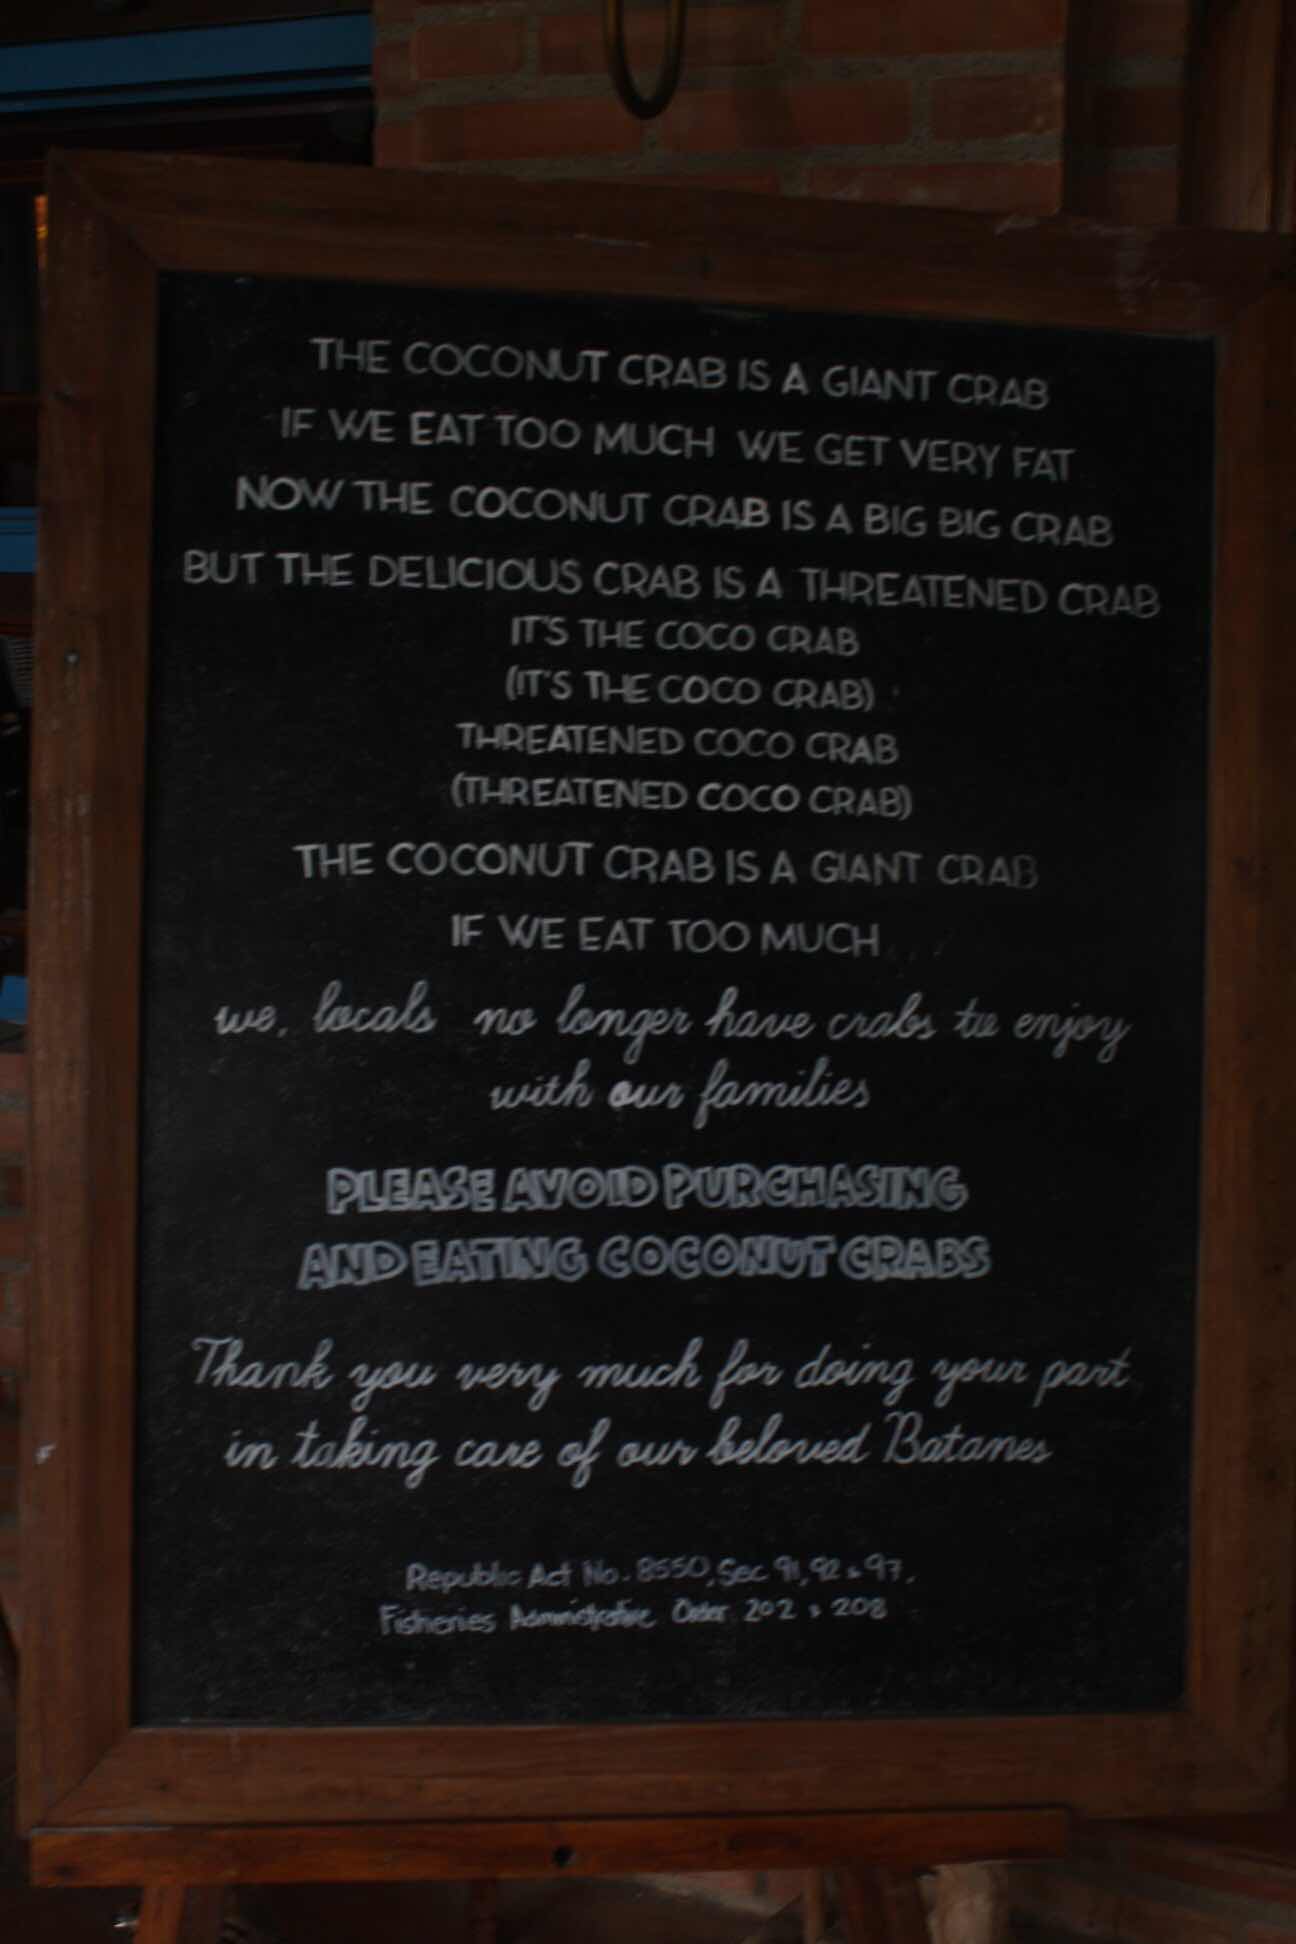 THE COCONUT CRAB IS A GIANT CRAB
IF WE EAT TOO MUCH WE GET VERY FAT
NOW THE COCONUT CRAB IS A BIG BIG CRAB
BUT THE DELICIOUS CRAB IS A THREATENED CRAB
IT'S THE COCO CRAB
(IT'S THE COCO CRAB)
THREATENED COCO CRAB
(THREATENED COCO CRAB)
THE COCONUT CRAB IS A GIANT CRAB
IF WE EAT TOO MUCH . . .
we, locals no longer have crabs to enjoy
with our families
PLEASE AVOID PURCHASING
AND EATING COCONUT CRABS
Thank you very much for doing your part
in taking care of our beloved Batanes
Republic Act No. 8550, Sec 91, 92 & 97,
Fisheries Administrative Order 202 & 208